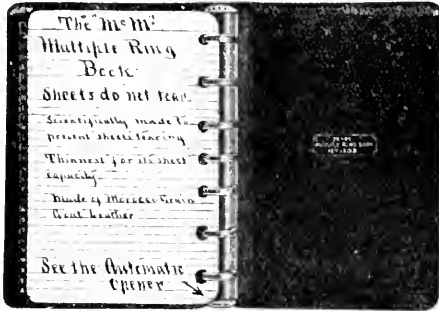 The "McM"
Multiple Ring
Book
Sheets do not tear
Scientifically made to
prevent sheets tearing
Thinnest for its sheet
capacity
Made of Morocco Grain
Goat Leather
See the Automatic
Opener